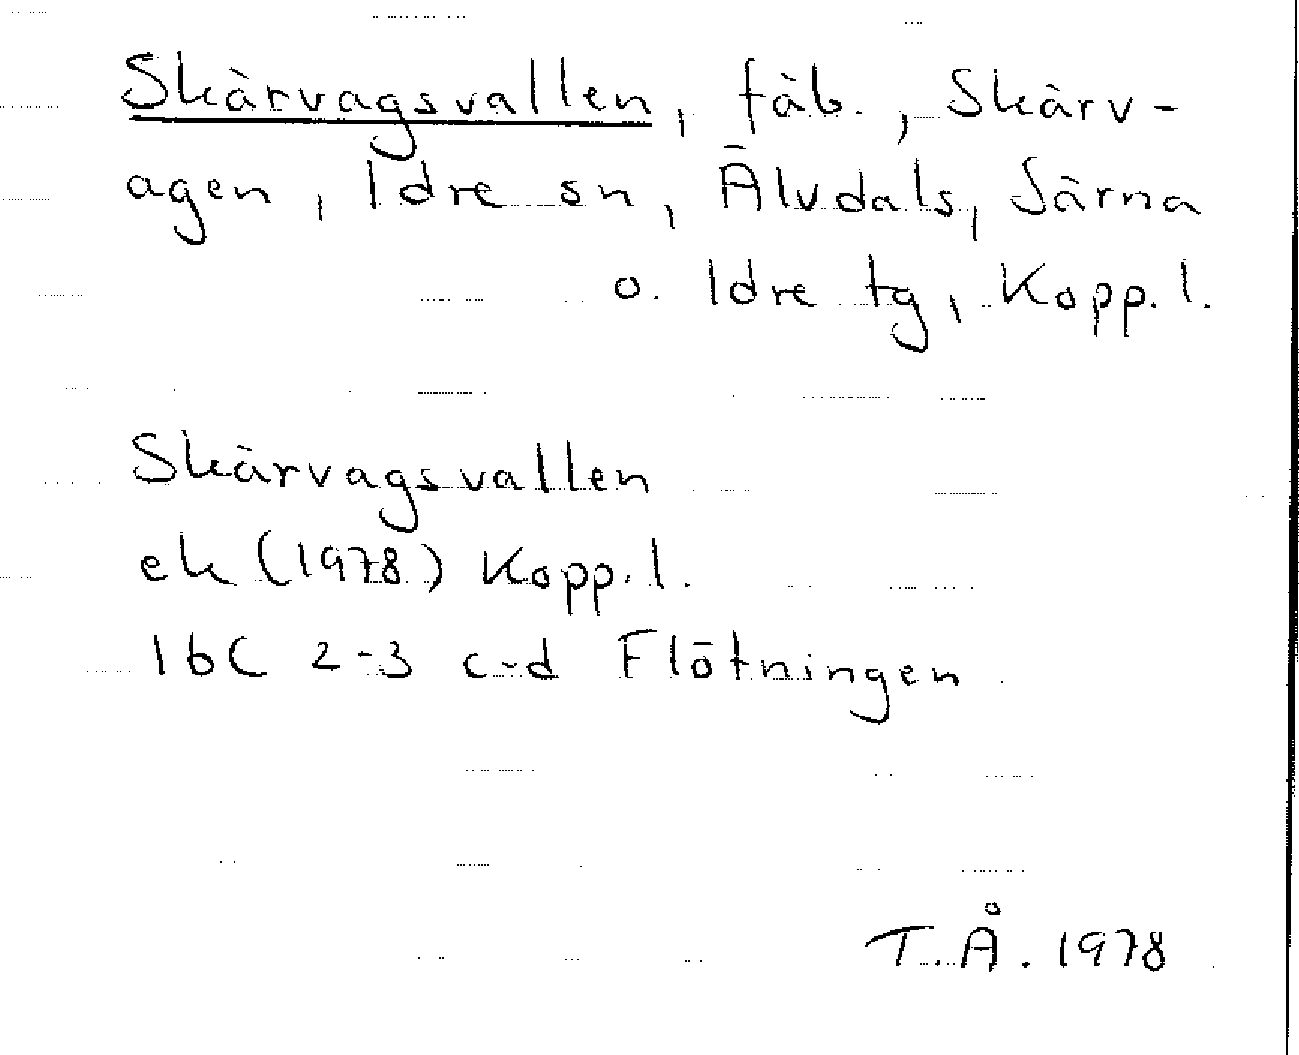 Skärvagsvallen, fäb., Skärv-
agen, Idre sn, Älvdals, Särna
o. Idre tg, Kopp. l.
Skärvagsvallen
ek (1978) Kopp. l.
16C 2-3 c-d Flötningen
T.Å. 1978